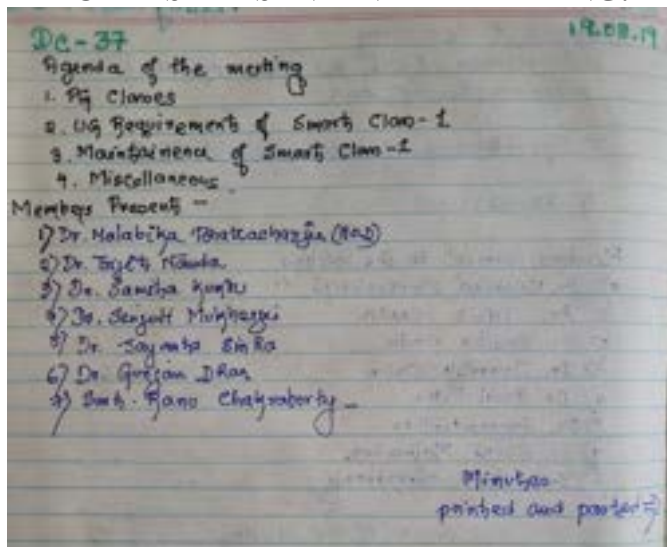 DC-37
19.08.19
Agenda of the meeting
1. PG Classes
2. UG Requirement of Smart Class-1
3. Maintainence of Smart Class-1
4. Miscellaneous
Members Present -
1) Dr. Malabika Bhattacharjee (HOD)
2) Dr.
3) Dr. Kundu
4) Dr. Mukherjee
5) Dr. Jayanta Sinha
6) Dr. Gunjan Dhar
7) Smt. Rano Chakraborty -
Minutes
printed and pasted